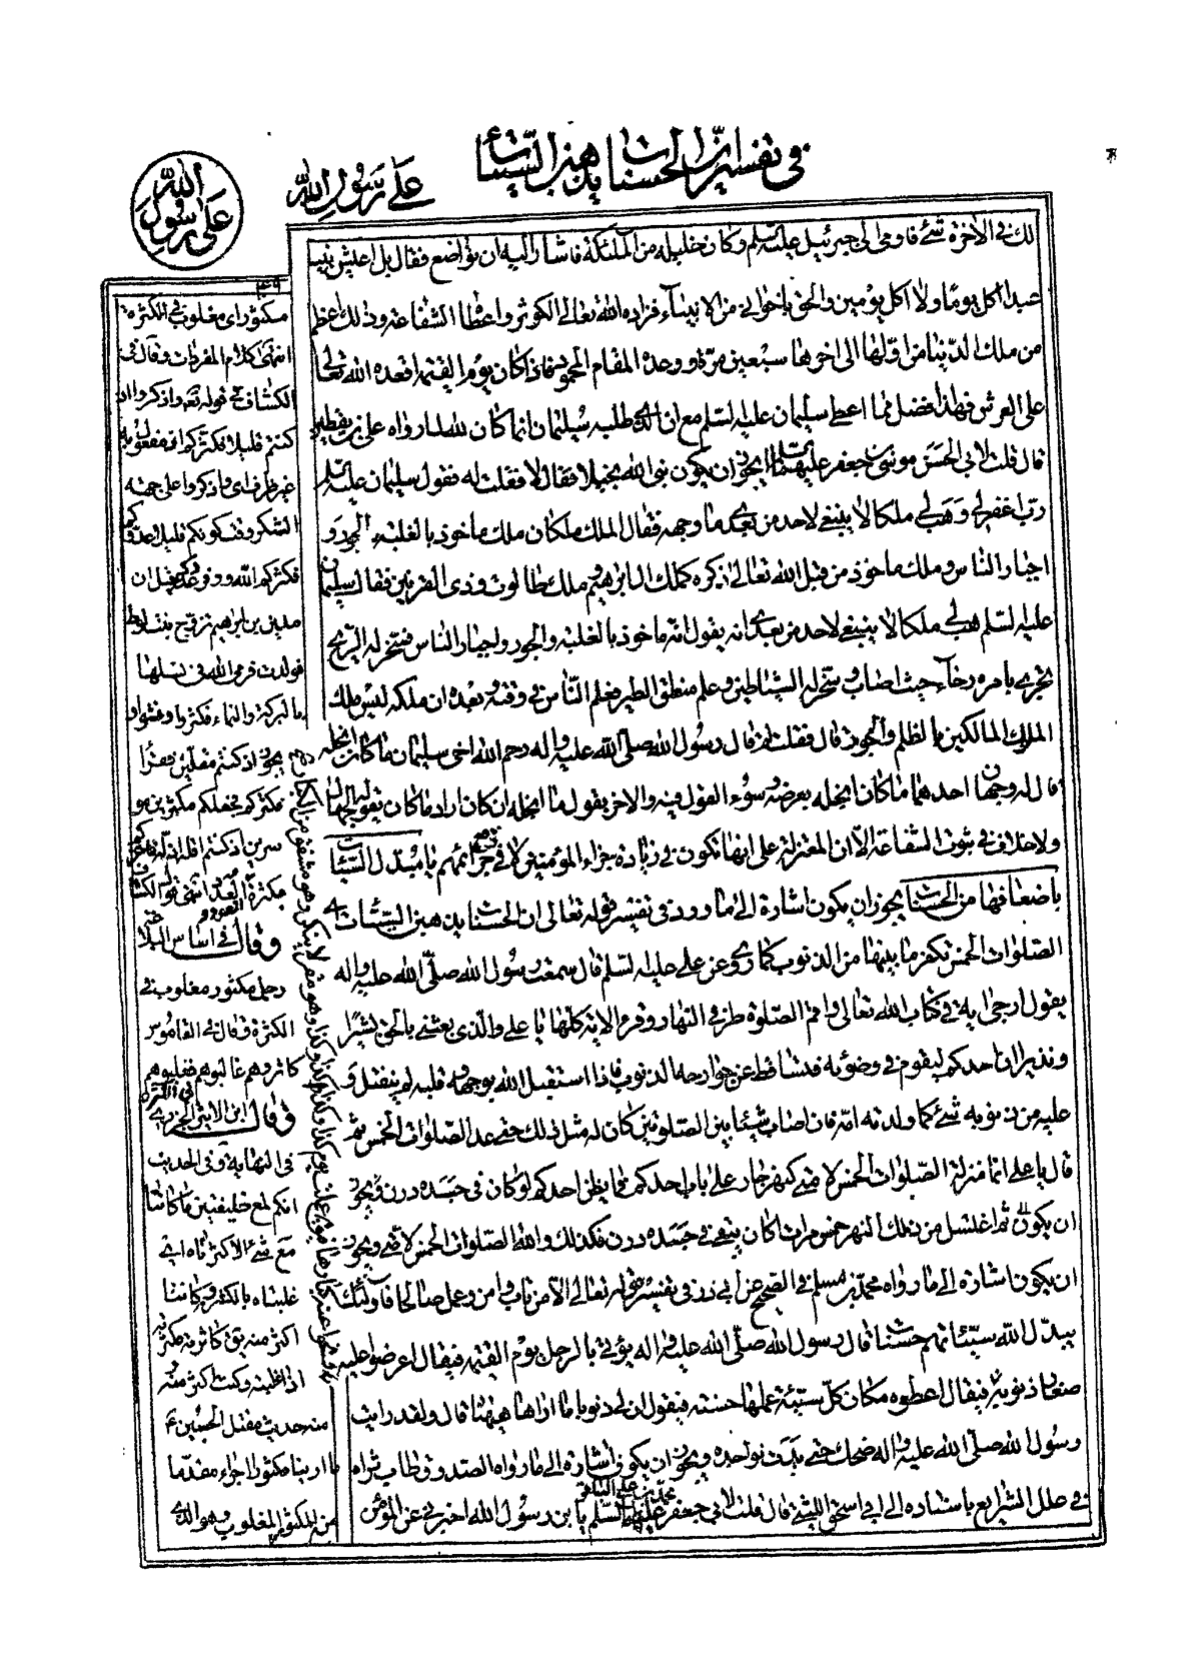 في تفسير إن الحسنات يذهبن السيئات
على رسول الله
الله على رسول
لك في الآخرة شيء فاومى الى جبرئيل عليه السلم وكان خليله من الملئكة فاشار اليه ان تواضع فقال بل اعيش نبيا
عبدا آكل يوما ولا آكل يومين والحق باخواني من الانبياء فزاده الله تعالى الكوثر واعطاه الشفاعة وذلك اعظم
من ملك الدنيا من اولها الى اخرها سبعين مرة ووعده المقام المحمود فاذا كان يوم القيمة اقعده الله تعالى
على العرش فهذا افضل مما اعطي سليمان عليه السلم مع ان الذي طلبه سليمان انما كان لله لما رواه علي بن يقطين
قال قلت لابي الحسن موسى بن جعفر عليهما السلم ايجوز ان يكون نبي الله بخيلا فقال لا فقلت له فقول سليمان عليه السلم
رب اغفر لي وهب لي ملكا لا ينبغي لاحد من بعدي ما وجهه فقال الملك ملكان ملك ماخوذ بالغلبة والجور و
اجبار الناس وملك ماخوذ من قبل الله تعالى ذكره كملك ال ابرهيم وملك طالوت وذي القرنين فقال سليمان
عليه السلم هب لي ملكا لا ينبغي لاحد من بعدي انه يقول انه ماخوذ بالغلبة والجور واجبار الناس فسخر له الريح
تجري بامره رخاء حيث اصاب وسخر له الشياطين وعلم منطق الطير فعلم الناس في وقته وبعده ان ملكه ليس ملك
الملوك المالكين بالظلم والجور قال فقلت له فقال رسول الله صلى الله عليه واله رحم الله اخي سليمان ما كان ابخله
قال له وجهان احدهما ما كان ابخله بعرضه وسوء القول فيه والاخر يقول ما ابخله ان كان اراد ما كان يقوله الجهال
ولا خلاف في ثبوت الشفاعة الا ان المعتزلة على انها تكون في زيادة جزاء المؤمنين لا في جرائمهم يا مبدل السيئات
باضعافها من الحسنات يجوز ان يكون اشارة الى ما ورد في تفسير قوله تعالى ان الحسنات يذهبن السيئات
الصلوات الخمس تكفر ما بينها من الذنوب كما روي عن علي عليه السلم قال سمعت رسول الله صلى الله عليه واله
يقول ارجى اية في كتاب الله تعالى واقم الصلوة طرفي النهار وقرء الاية كلها يا علي والذي بعثني بالحق بشيرا
ونذيرا ان احدكم ليقوم في وضوئه فتساقط عن جوارحه الذنوب فاذا استقبل الله بوجهه وقلبه لم ينفتل و
عليه من ذنوبه شيء كما ولدته امه فان اصاب شيئا بين الصلوتين كان له مثل ذلك حتى عد الصلوات الخمس ثم
قال يا علي انما منزلة الصلوات الخمس لامتي كنهر جار على باب احدكم فما يظن احدكم لو كان في جسده درن
ثم اغتسل من ذلك النهر خمس مرات اكان يبقى في جسده درن فكذلك والله الصلوات الخمس لامتي ويجوز
ان يكون اشارة الى ما رواه محمد بن مسلم في الصحيح عن ابي ذر في تفسير قوله تعالى الا من تاب وامن وعمل صالحا فاولئك
يبدل الله سيئاتهم حسنات قال رسول الله صلى الله عليه واله يؤتى بالرجل يوم القيمة فيقال اعرضوا عليه
صغار ذنوبه فيقال اعطوه مكان كل سيئة عملها حسنة فيقول ان لي ذنوبا ما اراها هيهنا قال ولقد رايت
رسول الله صلى الله عليه واله ضحك حتى بدت نواجذه ويجوز ان يكون اشارة الى ما رواه الصدوق طاب ثراه
في علل الشرايع باسناده الى ابي اسحق الليثي قال قلت لابي جعفر محمد بن علي الباقر عليهما السلم يا بن رسول الله اخبرني عن المؤمن
مكثور اي مغلوب في الكثرة
انتهى كلام المفردات وقال في
الكشاف في قوله تعه واذكروا اذ
كنتم قليلا فكثركم اذ مفعول به
غير ظرف اي واذكروا على جهة
الشكر وقت كونكم قليلا عددكم
فكثركم الله ووفر عددكم قيل ان
مدين بن ابراهيم تزوج بنت لوط
فولدت فرمى الله في نسلها
بالبركة والنماء فكثروا وفشوا و
يجوز اذ كنتم مقلين فقراء
فكثركم فجعلكم مكثرين مو
سرين اذ كنتم اقلة اذلة فاعزكم
بكثرة العدد والعدد انتهى
وقال في اساس البلاغة
رجل مكثور مغلوب في
الكثرة وقال في القاموس
كاثروهم غالبوهم فغلبوهم
في الكثرة
وقال ابن الاثير الجزري
في النهاية وفي الحديث
انكم لمع خليقتين ما كانتا
مع شيء الا كثرتاه اي
غلبتاه بالكثرة وكانتا
اكثر منه يق كاثرته فكثرته
اذا غلبته وكنت اكثر منه و
منه حديث مقتل الحسين ع
ما راينا مكثورا اجراء مقدما
من المكثور المغلوب وهو الذي